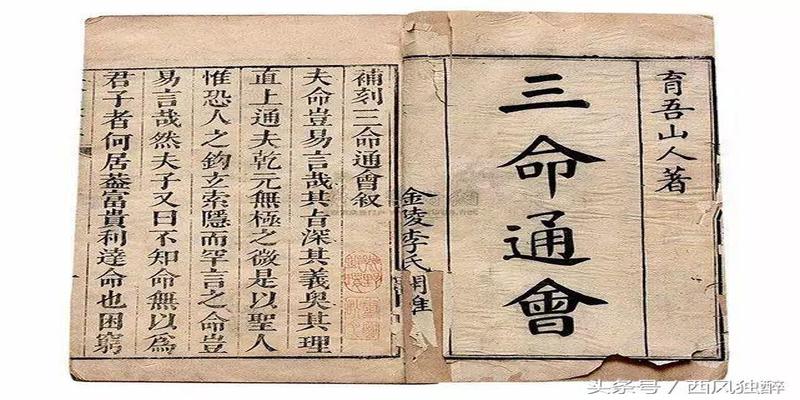 育吾山人著
三命通會
金陵李氏
補刻三命通會叙
夫命豈易言哉其㫖深其義奥其理
直上通夫乾元無極之微是以聖人
惟恐人之鈎立索隱而罕言之命豈
易言哉然夫子又曰不知命無以為
君子者何居葢富貴利達命也困窮
头条号/西风独醉